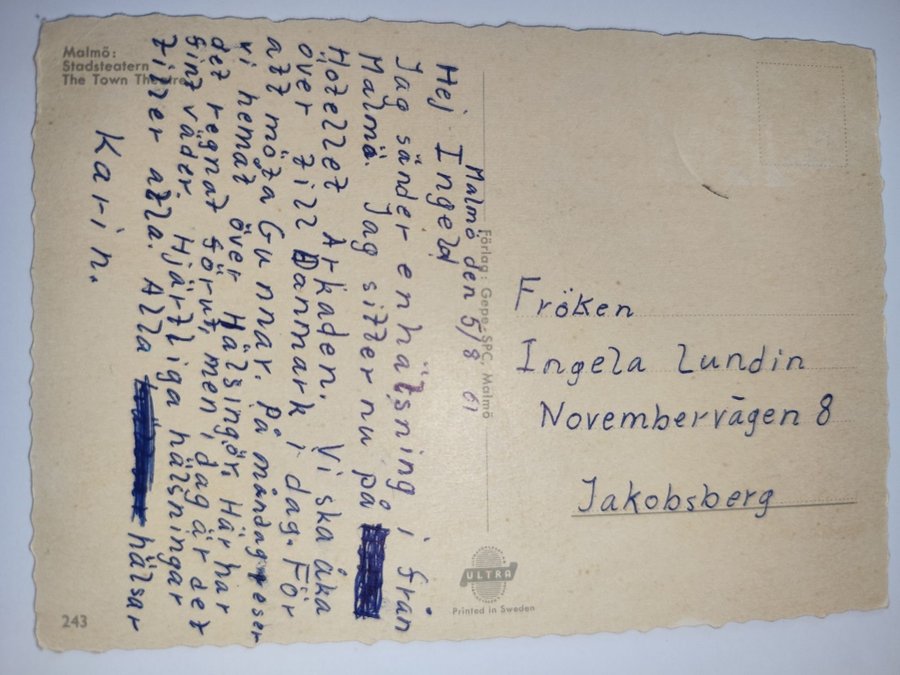 Malmö:
Stadsteatern
The Town Theatre
Malmö den 5/8 61
Hej Ingela
Jag sänder en hälsning i från
Malmö. Jag sitter nu på
Hotellet Arkaden. Vi ska åka
över till Danmark i dag. För
att möta Gunnar. På måndag reser
vi hemat över Hälsingör. Här har
det regnat förut, men i dag är det
fint väder. Hjärtliga hälsningar
till er alla. Alla hälsar
Karin.
Förlag: Gepe-SPC, Malmö
Fröken
Ingela Lundin
Novembervägen 8
Jakobsberg
ULTRA
Printed in Sweden
243